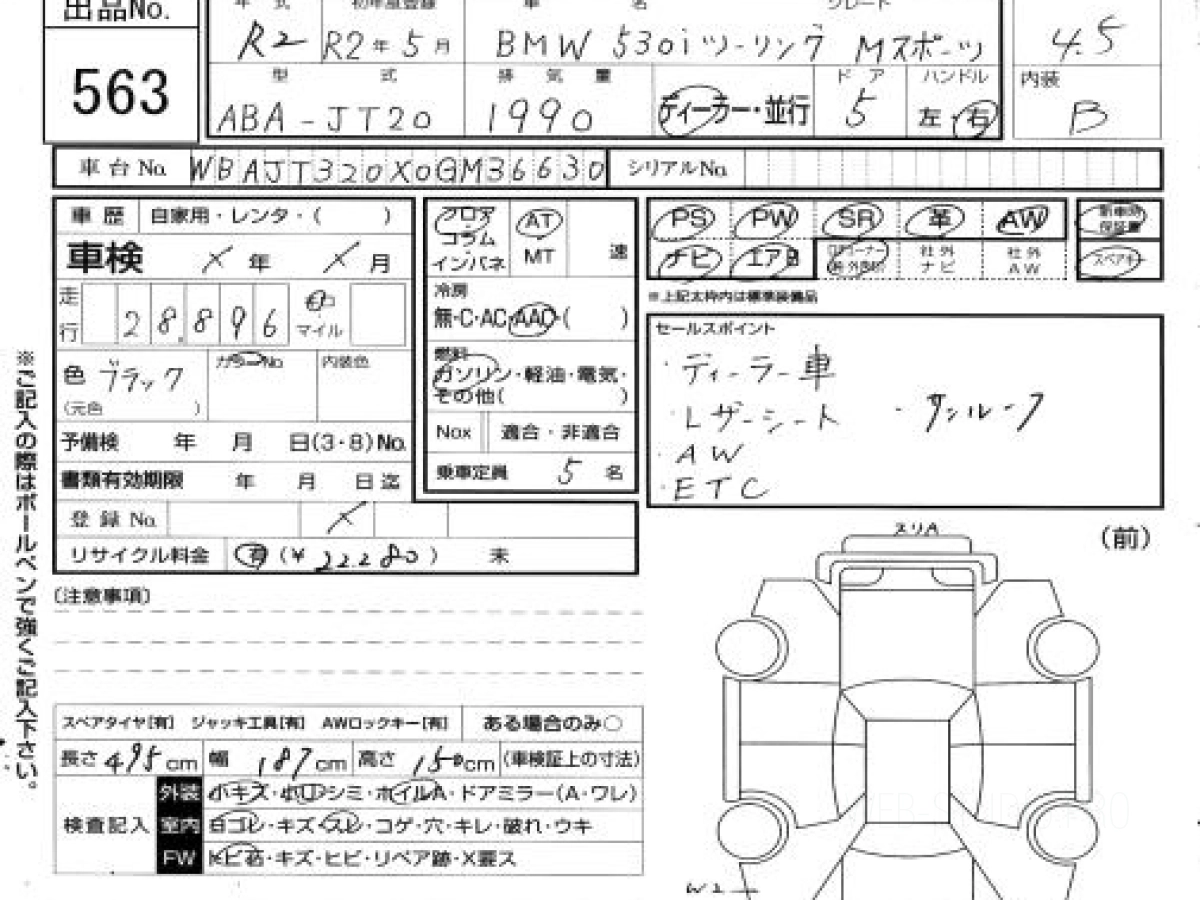 出品No.
563
年 式
初年度登録
車 名
グレード
R2
R2年5月
BMW 530iツーリング Mスポーツ
4.5
型 式
排 気 量
ドア
ハンドル
内装
ABA-JT20
1990
ディーラー・並行
5
左・右
B
車台No.
WBAJT320X0GM36630
シリアルNo.
車 歴
自家用・レンタ・( )
フロア
コラム
インパネ
AT
MT
速
PS
PW
SR
革
AW
新車時
保証書
車検
×年
×月
ナビ
エアB
社外
ナビ
社外
AW
スペアキー
走行
28,896
マイル
冷房
無・C・AC・AAC・( )
※上記太枠内は標準装備品
色 ブラック
(元色 )
カラーNo.
内装色
燃料
ガソリン・軽油・電気・
その他( )
セールスポイント
・ディーラー車
・レザーシート ・サンルーフ
・AW
・ETC
予備検 年 月 日(3・8)No.
Nox
適合・非適合
書類有効期限 年 月 日迄
乗車定員 5 名
登録No.
×
リサイクル料金
有(¥22280) 未
スリA
(前)
(注意事項)
※ご記入の際はボールペンで強くご記入下さい。
スペアタイヤ[有] ジャッキ工具[有] AWロックキー[有]
ある場合のみ○
長さ495cm
幅 187cm
高さ 150cm
(車検証上の寸法)
検査記入
外装
小キズ・小凹・シミ・ホイルA・ドアミラー(A・ワレ)
室内
日ゴレ・キズ・スレ・コゲ・穴・キレ・破れ・ウキ
FW
トビ石・キズ・ヒビ・リペア跡・X要ス
W2